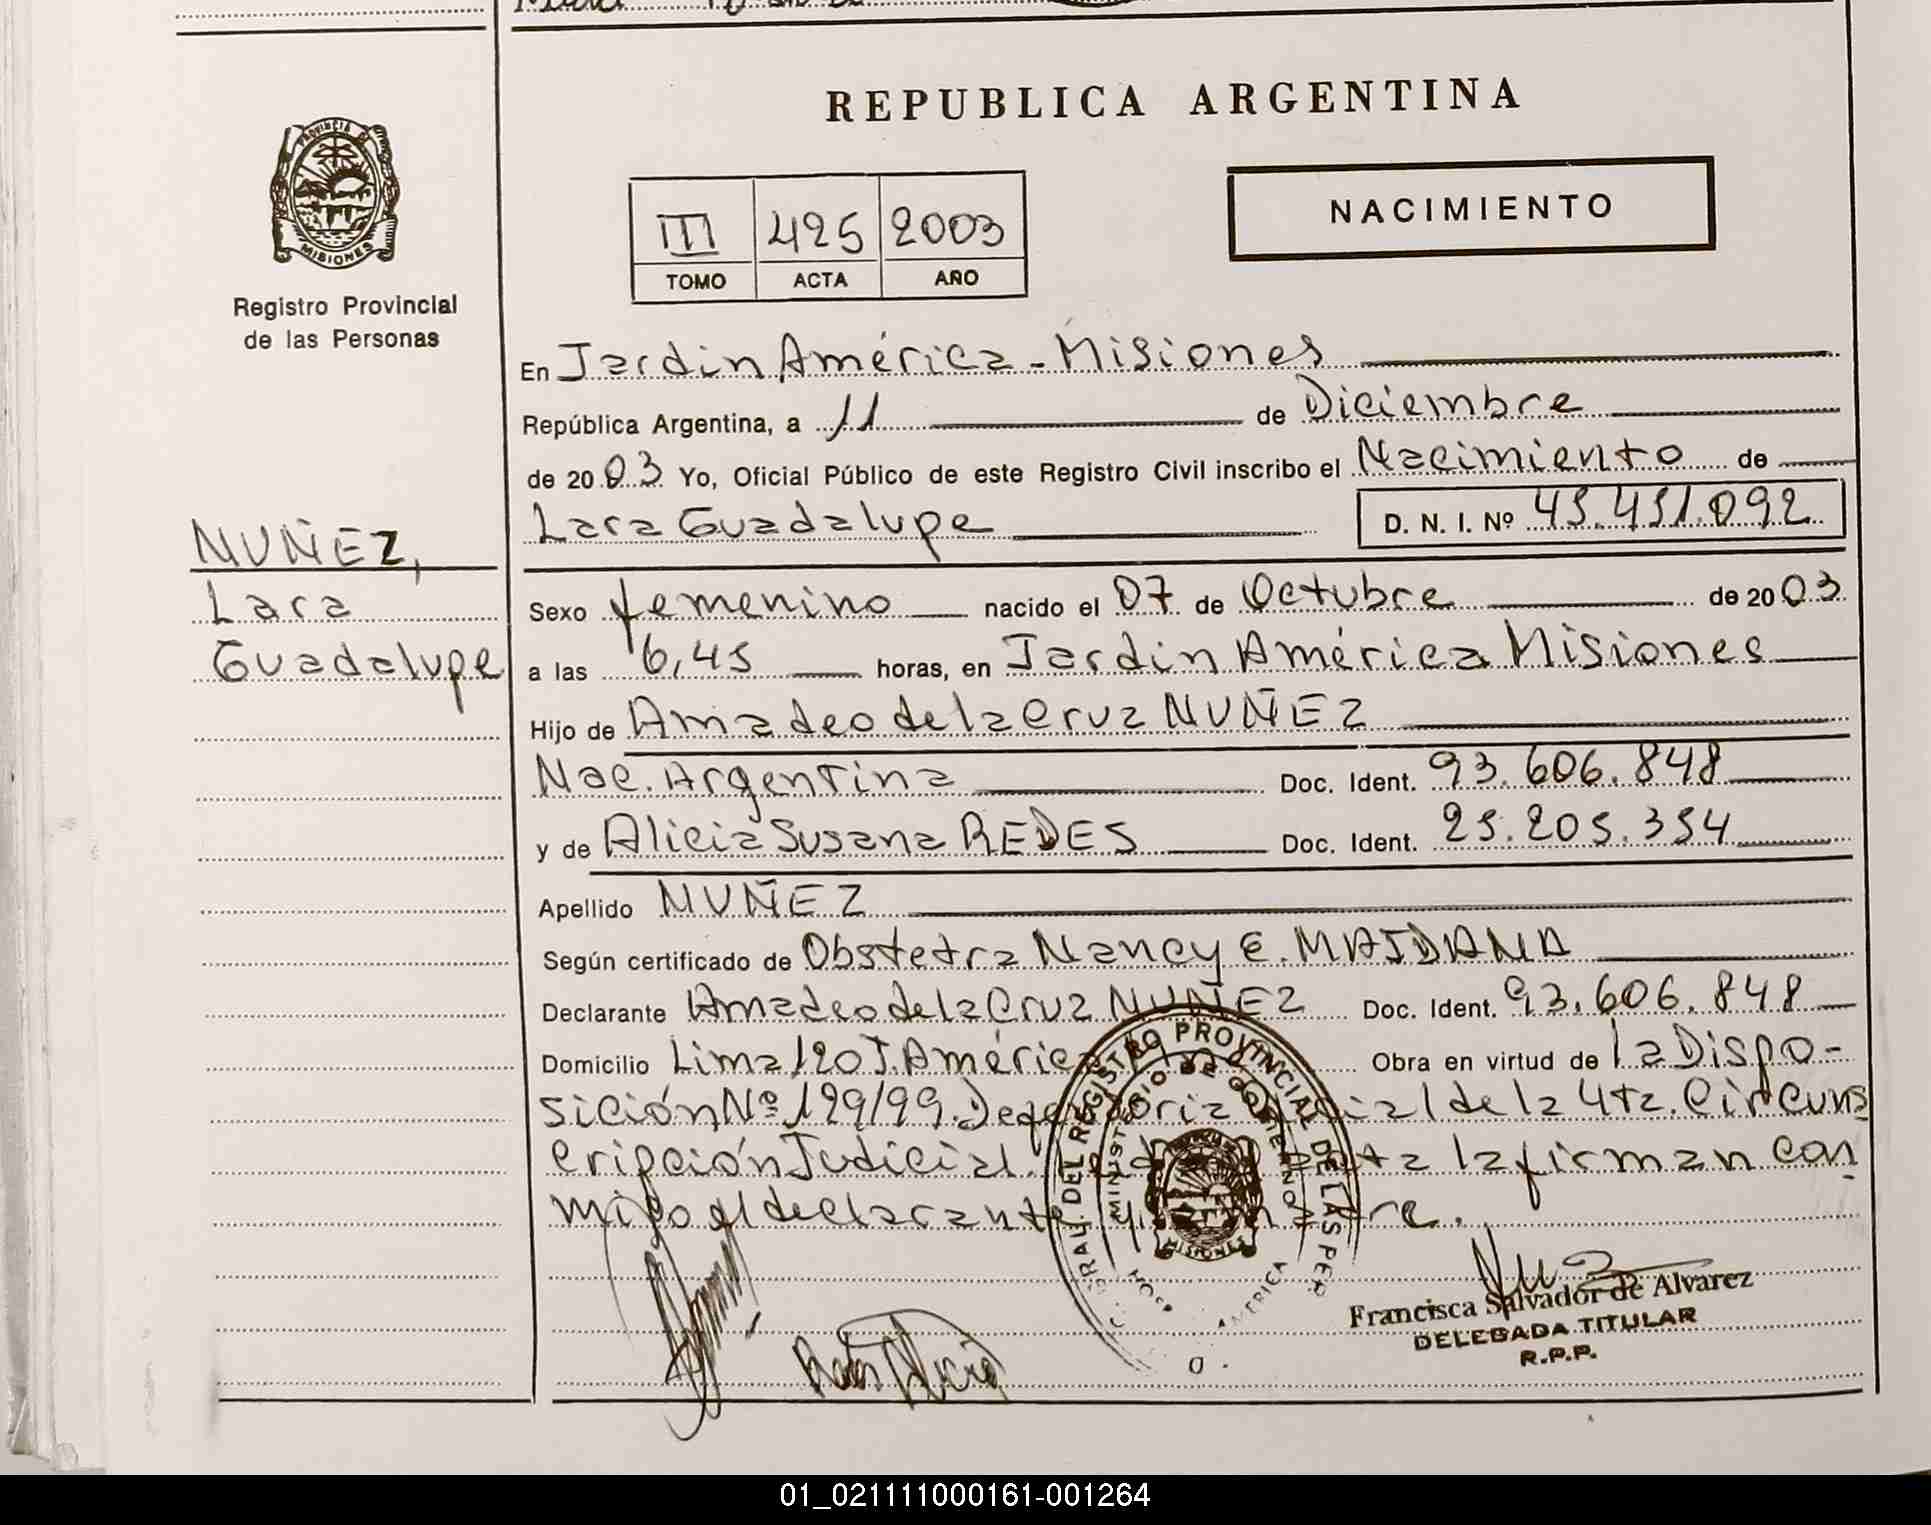 REPUBLICA ARGENTINA
PROVINCIA DE
MISIONES
Registro Provincial
de las Personas
III 425 2003
TOMO ACTA AÑO
NACIMIENTO
En Jardin América - Misiones
República Argentina, a 11 de Diciembre
de 2003 Yo, Oficial Público de este Registro Civil inscribo el Nacimiento de
Lara Guadalupe D. N. I. Nº 45.451.092
NUÑEZ,
Lara
Guadalupe
Sexo femenino nacido el 07 de Octubre de 2003
a las 6,45 horas, en Jardin América Misiones
Hijo de Amadeo de la Cruz NUÑEZ
Nac. Argentina Doc. Ident. 93.606.848
y de Alicia Susana REDES Doc. Ident. 25.205.354
Apellido NUÑEZ
Según certificado de Obstetra Nancy E. MAIDANA
Declarante Amadeo de la Cruz NUÑEZ Doc. Ident. 93.606.848
Domicilio Lima 120 J. América Obra en virtud de la Dispo-
sición Nº 129/99. de la 4ta. Circuns
cripción Judicial. la firman con
migo el declarante
DEL REGISTRO PROVINCIAL DE LAS PER
MINISTERIO DE GOBIERNO
MISIONES
AMERICA
Francisca Salvador de Alvarez
DELEGADA TITULAR
R.P.P.
01_021111000161-001264